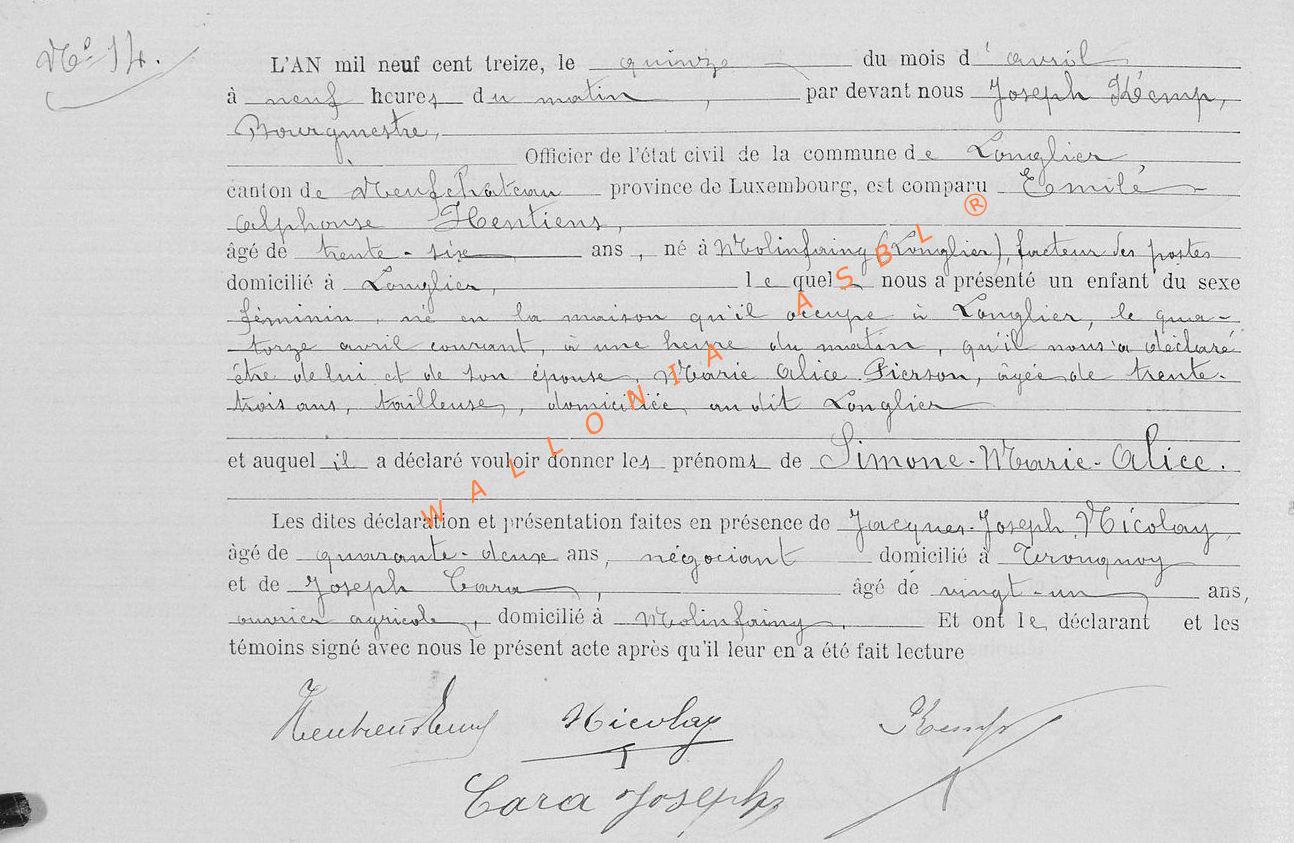 N° 14.
L'AN mil neuf cent treize, le quinze du mois d'avril
à neuf heures du matin, par devant nous Joseph Kemp,
Bourgmestre,
Officier de l'état civil de la commune de Longlier,
canton de Neufchâteau province de Luxembourg, est comparu Eemile
Alphonse Hentiens,
âgé de trente-six ans, né à Molinfaing (Longlier), facteur des postes
domicilié à Longlier, lequel nous a présenté un enfant du sexe
féminin, né en la maison qu'il occupe à Longlier, le qua-
torze avril courant, à une heure du matin, qu'il nous a déclaré
être de lui et de son épouse, Marie Alice Pierson, âgée de trente-
trois ans, tailleuse, domiciliée audit Longlier
et auquel il a déclaré vouloir donner les prénoms de Simone-Marie-Alice.
Les dites déclaration et présentation faites en présence de Jacques-Joseph Nicolay,
âgé de quarante-deux ans, négociant domicilié à Tronquoy
et de Joseph Cara, âgé de vingt-un ans,
ouvrier agricole, domicilié à Molinfaing, Et ont le déclarant et les
témoins signé avec nous le présent acte après qu'il leur en a été fait lecture
Nicolay Kemp
Cara Joseph
WALLONIA ASBL ®